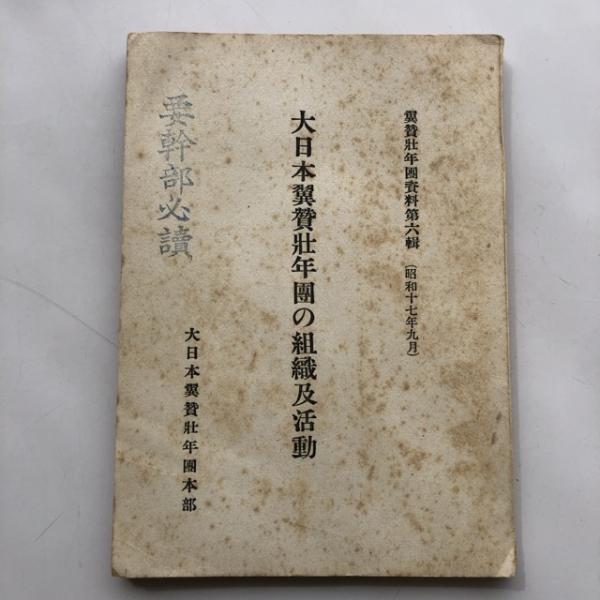 翼贊壯年團資料第六輯 (昭和十七年九月)
大日本翼贊壯年團の組織及活動
大日本翼贊壯年團本部
要幹部必讀